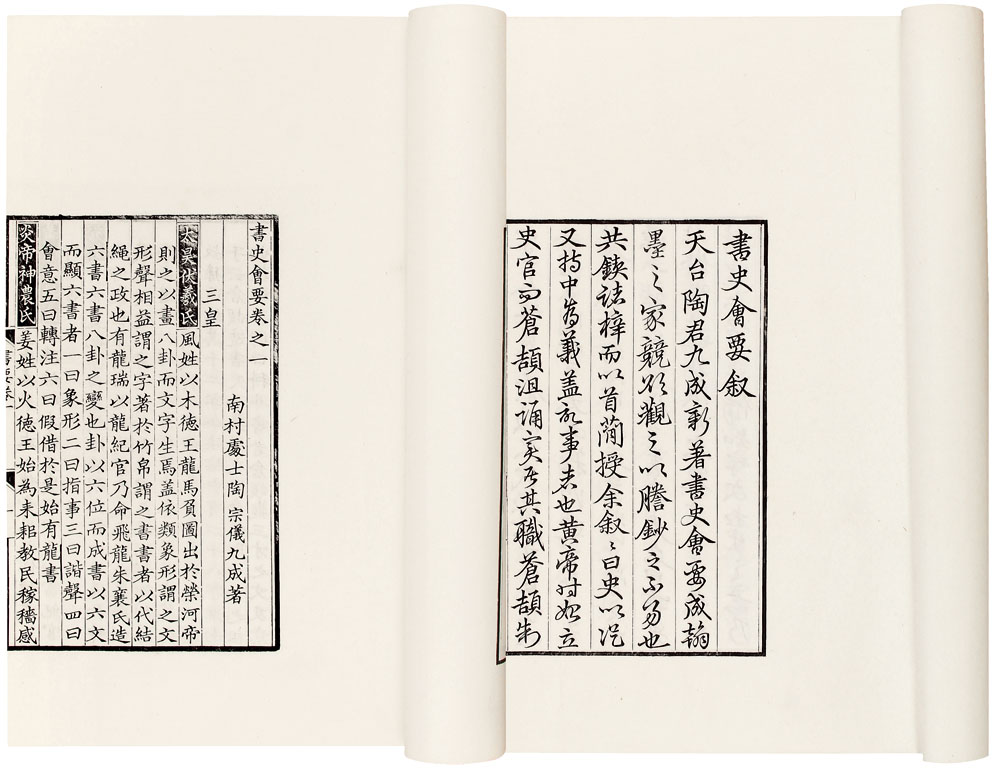 書史會要叙
天台陶君九成新著書史會要成翰
墨之家競欲觀之以謄鈔之不易也
共鋟諸梓而以首簡授余叙〻曰史以從
又持中為義蓋記事者也黃帝時始立
史官而蒼頡沮誦實居其職蒼頡制
書史會要卷之一
南村處士陶 宗儀九成著
三皇
太昊伏羲氏風姓以木徳王龍馬負圖出於滎河帝
則之以畫八卦而文字生焉蓋依類象形謂之文
形聲相益謂之字著於竹帛謂之書書者以代結
繩之政也有龍瑞以龍紀官乃命飛龍朱襄氏造
六書六書八卦之變也卦以六位而成書以六文
而顯六書者一曰象形二曰指事三曰諧聲四曰
會意五曰轉注六曰假借於是始有龍書
炎帝神農氏姜姓以火徳王始為耒耜教民稼穡感